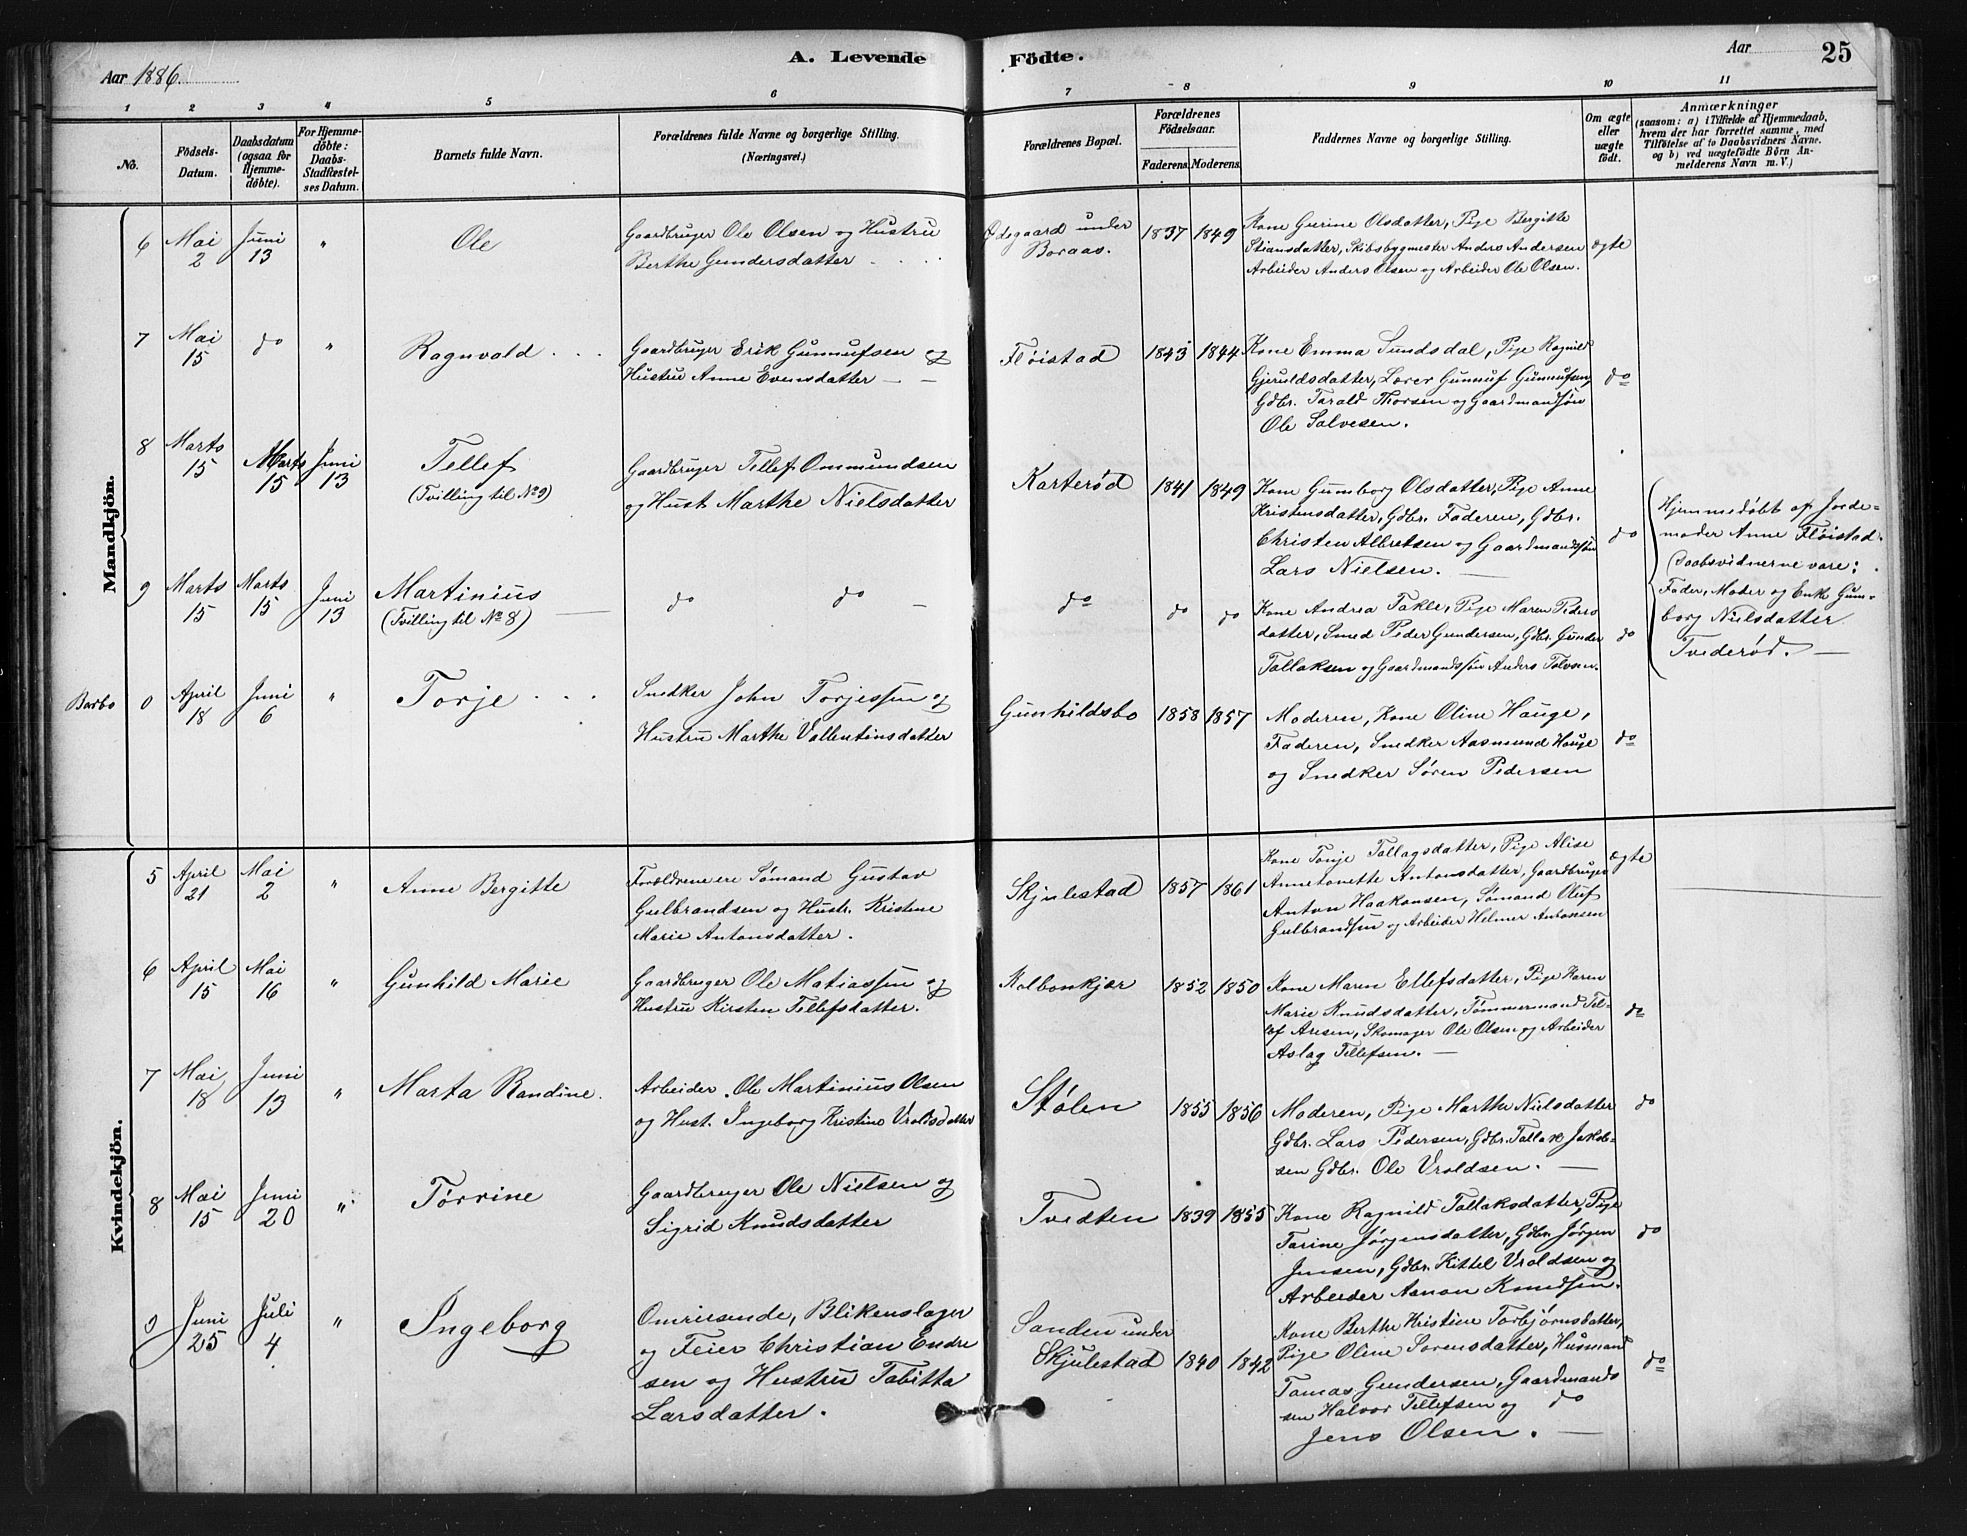 Aar 1886.
A. Levende Födte.
Aar
25
1 2 3 4 5 6 7 8 9 10 11
No.
Födsels-Datum.
Daabsdatum (ogsaa for Hjemmedöbte).
For Hjemmedöbte: Daabs-Stadfæstelses Datum.
Barnets fulde Navn.
Forældrenes fulde Navne og borgerlige Stilling.
(Næringsvei.)
Forældrenes Bopæl.
Forældrenes Födselsaar.
Faderens. Moderens.
Faddernes Navne og borgerlige Stilling.
Om ægte eller uægte födt.
Anmærkninger
(saasom: a) i Tilfælde af Hjemmedaab,
hvem der har forrettet samme, med
Tilföielse af to Daabsvidners Navne.
og b) ved uægtefödte Börn Anmelderens Navn m. V.)
Mandkjön.
6 Mai 2 Juni 13 " Ole
Gaardbruger Ole Olsen og Hustru
Berthe Gundersdatter
Ødegaard under
Boraas.
1837 1849
Kone Gurine Olsdatter, Pige Bergitte
Stiansdatter, Skibsbygmester Anders Andersen
Arbeider Anders Olsen og Arbeider Ole Olsen.
ægte
7 Mai 15 do " Ragnvald
Gaardbruger Erik Gunnufsen og
Hustru Anne Evensdatter
Fløistad
1843 1844
Kone Emma Sundsdal, Pige Ragnild
Gjeruldsdatter, Lærer Gunnuf Gunnufsen,
Gdbr. Tarald Thorsen og Gaardmandssøn
Ole Salvesen.
do
8 Marts 15 Marts 15 Juni 13 Tellef
(Tvilling til No 9)
Gaardbruger Tellef Ommundsen
og Hust. Marthe Nielsdatter
Karterød
1841 1849
Kone Gumborg Olsdatter, Pige Anne
Kristensdatter, Gdbr. Faderen, Gdbr.
Christen Albretsen og Gaardmandssøn
Lars Nielsen.
do
Hjemmedøbt af Jorde-
moder Anne Fløistad.
Daabsvidnerne vare:
Fader, Moder og Enke Gum-
borg Nielsdatter
Tvederød.
9 Marts 15 Marts 15 Juni 13 Martinius
(Tvilling til No 8)
do do
do
do do
Kone Andrea Takle, Pige Maren Peders
datter, Smed Peder Gundersen, Gdbr. Gunder
Tallaksen og Gaardmandssøn Anders Tolvsen.
do
Barbo 0 April 18 Juni 6 " Torje
Snedker John Torjessen og
Hustru Marthe Vallentinsdatter
Gunhildsbo
1858 1857
Moderen, Kone Oline Hauge,
Faderen, Snedker Aasmund Hauge
og Snedker Søren Pedersen
do
Kvindekjön.
5 April 21 Mai 2 " Anne Bergitte
Forældrene ere Sømand Gustav
Gulbrandsen og Hustr. Kristine
Marie Antonsdatter.
Skjulestad
1857 1861
Kone Tonje Tallagsdatter, Pige Alise
Annetonette Antonsdatter, Gaardbruger
Anton Haakonsen, Sømand Oluf
Gulbrandsen og Arbeider Helmer Antonsen
ægte
6 April 15 Mai 16 " Gunhild Marie
Gaardbruger Ole Matiassen og
Hustru Kirsten Tellefsdatter.
Kolbonkjær
1852 1850
Kone Maren Ellefsdatter, Pige Karen
Marie Knudsdatter, Tømmermand Tel-
lef Aresen, Skomager Ole Olsen og Arbeider
Aslag Tellefsen.
do
7 Mai 18 Juni 13 " Marta Randine.
Arbeider Ole Martinius Olsen
og Hust. Ingeborg Kristine Vroldsdatter
Stølen
1855 1856
Moderen, Pige Marthe Nielsdatter
Gdbr. Lars Pedersen, Gdbr. Tallak Jakob-
sen Gdbr. Ole Vroldsen.
do
8 Mai 15 Juni 20 " Tørrine
Gaardbruger Ole Nielsen og
Sigrid Knudsdatter
Tvedten
1839 1855
Kone Ragnild Tallaksdatter, Pige
Tarine Jørgensdatter, Gdbr. Jørgen
Jensen, Gdbr. Kittel Vroldsen og
Arbeider Aanon Knudsen.
do
9 Juni 25 Juli 4 " Ingeborg
Omreisende, Blikenslager
og Feier Christian Endre
sen og Hustru Tabitta
Larsdatter.
Sanden under
Skjulestad
1840 1842
Kone Berthe Kristine Torbjørnsdatter,
Pige Oline Sorensdatter, Husmand
Tomas Gundersen, Gaardmands
søn Halvor Tellefsen og do
Jens Olsen.
do